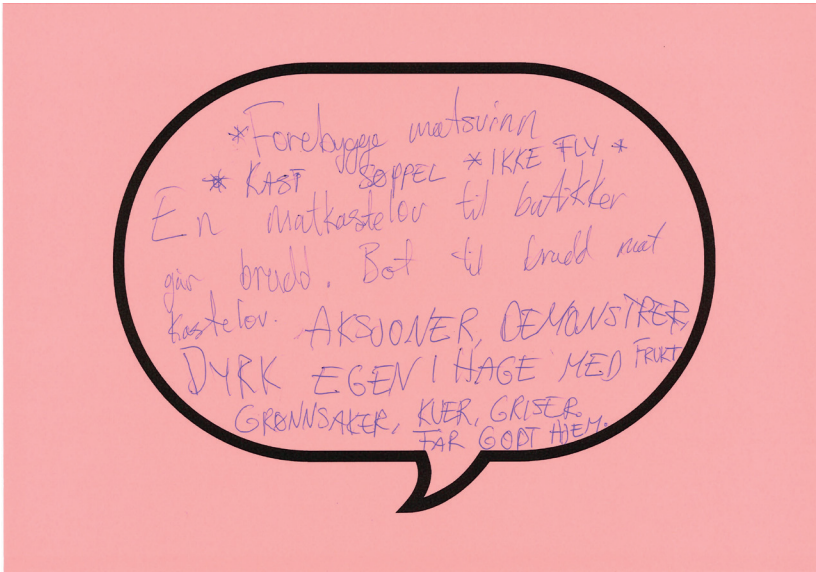 *Forebygge matsvinn
* KAST SØPPEL *IKKE FLY *
En matkastelov til butikker
går brudd. Bot til brudd mat
kastelov. AKSJONER, DEMONSTRER,
DYRK EGEN I HAGE MED FRUKT
GRØNNSAKER, KUER, GRISER
FÅR GODT HJEM.